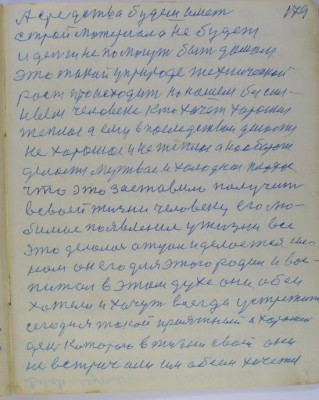 179
А средства будем имет
строй материала не будет
и деньги не помогут быт домам
это такой у природе технической
рост происходит по нашем
человека Кто хочет хорошее
теплое а ему впоследствии
не хорошое и не теплое а наоборот
делается мертвое и холодное
что это заставило получит
в своей жизни человеку его лю-
бимое появление у жизни все
это делалос отцом и делается сы-
ном он его для этого родил и вос-
питал в этом духе они обои
хотели и хочут всегда устретит
сегодня такой приятный и хороший
ден Которого в жизни своей они
не встречали им обоим хочется